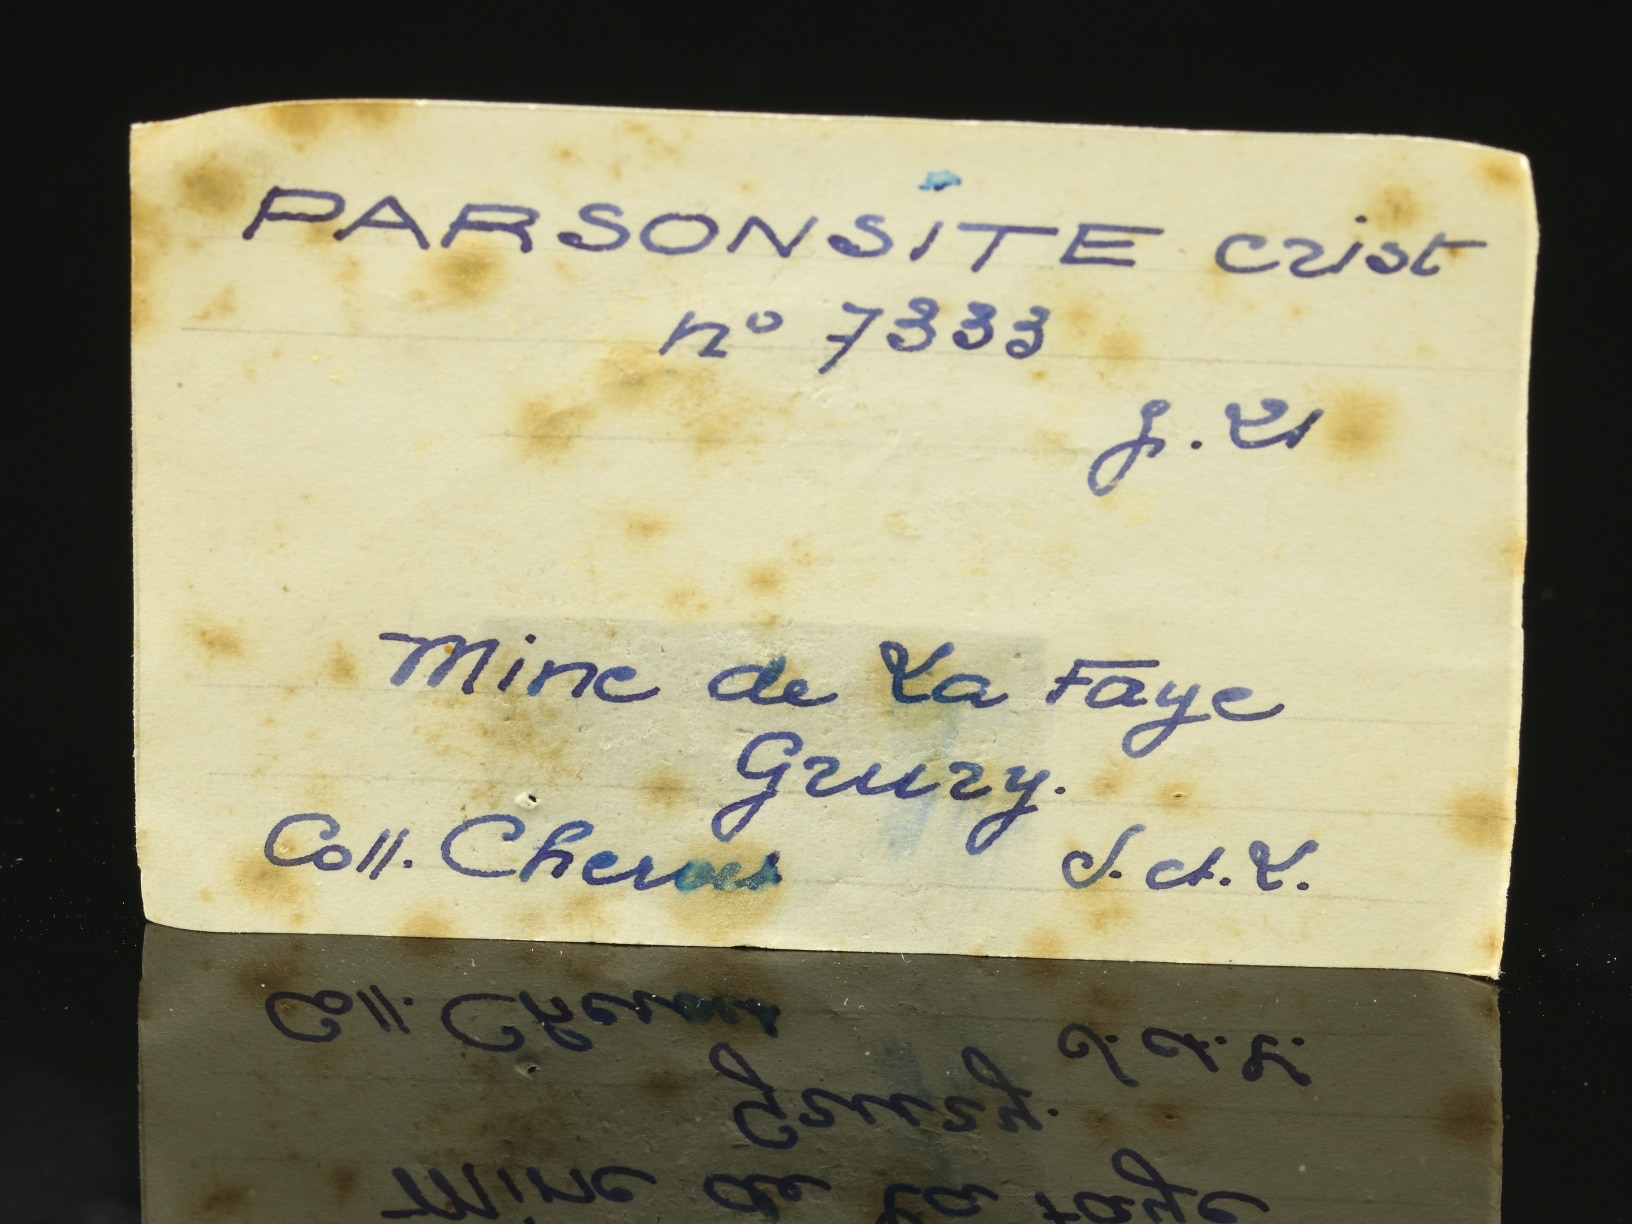 PARSONSiTE crist
n° 7333
Mine de La Faye
Grury.
Coll. S. et. L.